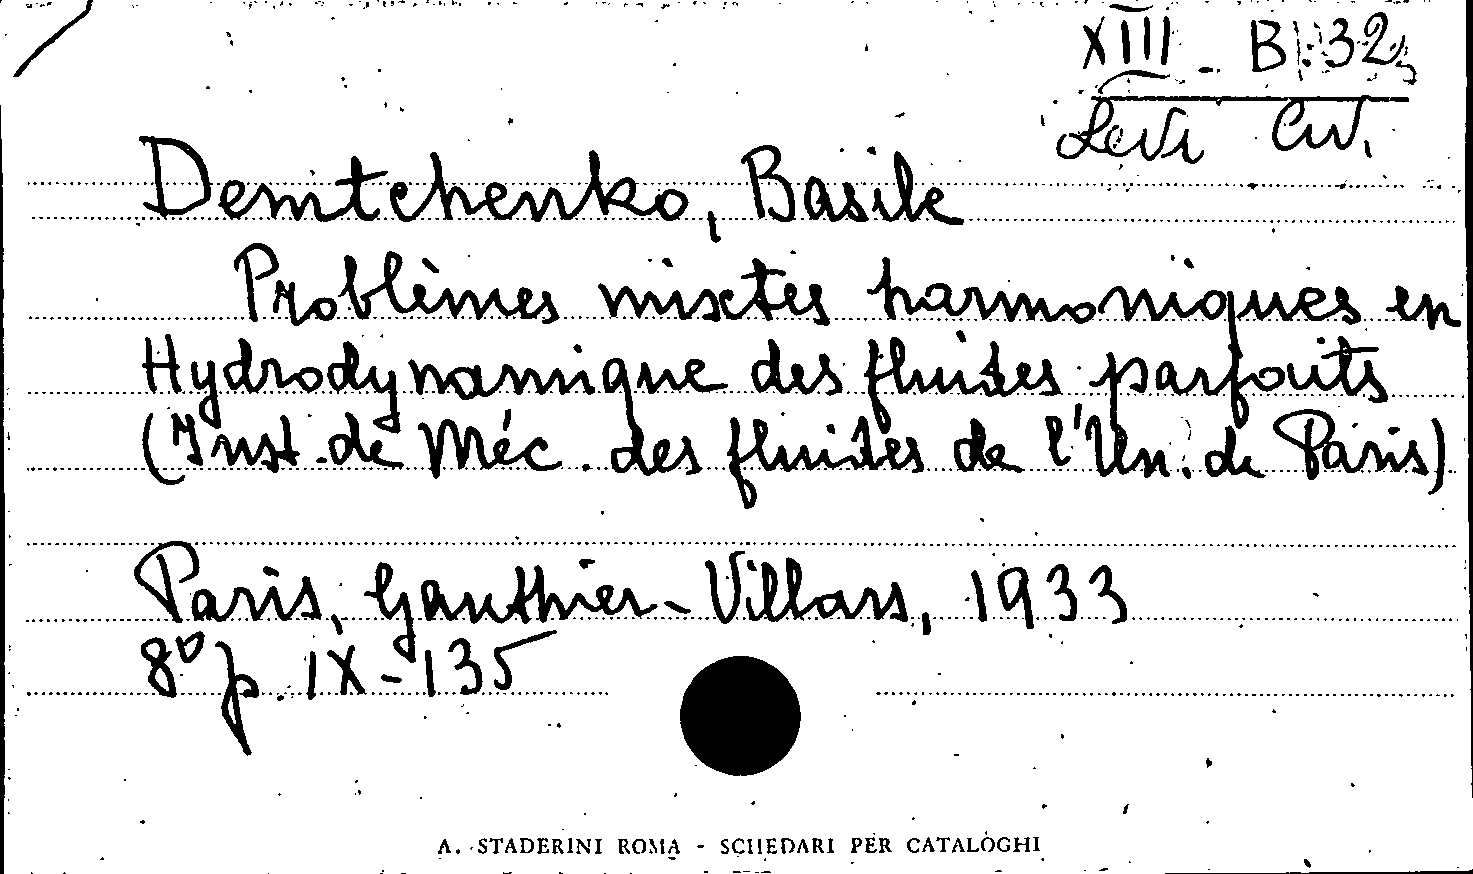 XIII - B.32
Levi Civ.
Demtchenko, Basile
Problèmes mixtes harmoniques en
Hydrodynamique des fluides parfaits
(Inst. de Méc. des fluides de l'Un. de Paris)
Paris, Gauthier-Villars, 1933
8º p. IX-135
A. STADERINI ROMA - SCHEDARI PER CATALOGHI